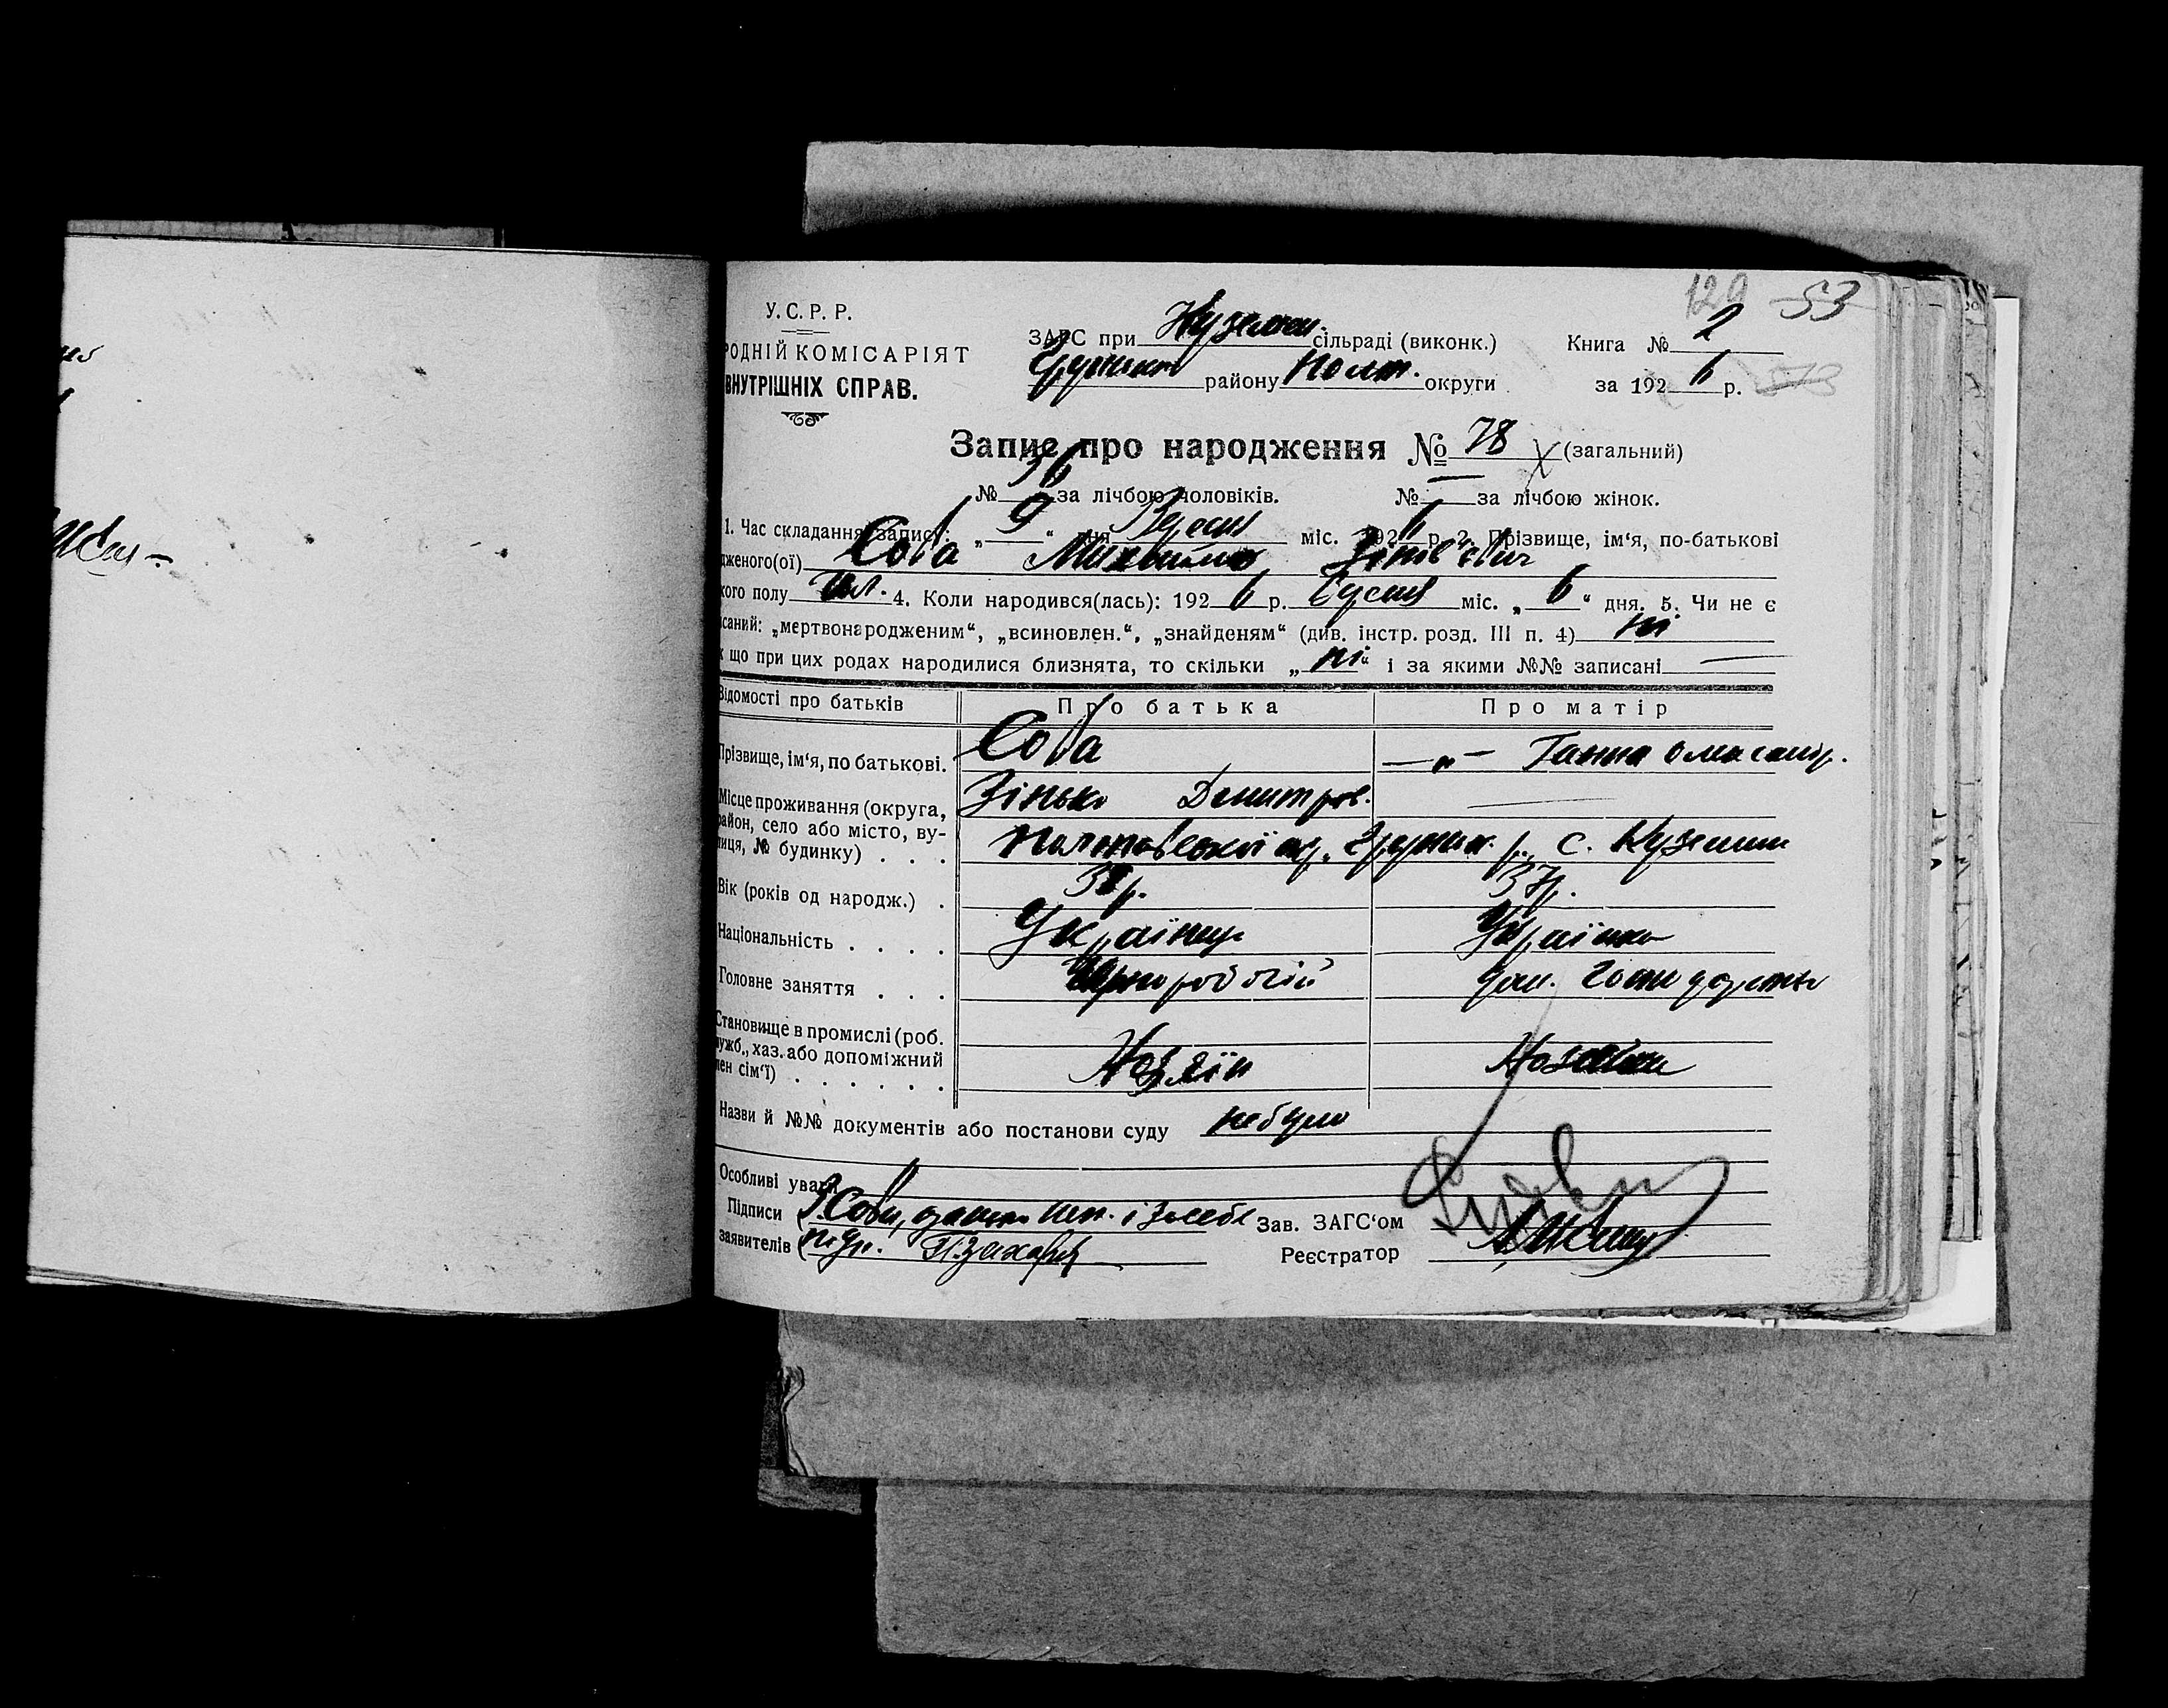 129 53
У. С. Р. Р.
РОДНІЙ КОМІСАРІЯТ
ВНУТРІШНІХ СПРАВ.
ЗАГС при Куземен. сільраді (виконк.) Книга № 2
Грунськ району Полт. округи за 1926 р.
Запис про народження № 78 (загальний)
№ 36 за лічбою чоловіків. № — за лічбою жінок.
1. Час складання запису: „ 9 “ дня Вересня міс. 1926 р. 2. Прізвище, ім‘я, по-батькові
дженого(ої) Сова Михайло Зінов'євич
кого полу чол. 4. Коли народився(лась): 1926 р. міс. „ 6 “ дня. 5. Чи не є
саний: „мертвонародженим“, „всиновлен.“, „знайденям“ (див. інстр. розд. III п. 4) ні
що при цих родах народилися близнята, то скільки „ ні “ і за якими №№ записані —
Відомості про батьків Про батька Про матір
Прізвище, ім‘я, по батькові. Сова —„— Ганна Олександр.
Зінько Дмитров. —
Місце проживання (округа,
район, село або місто, ву-
лиця, № будинку) . . . Полтавської окр. Грунськ. р., с. Куземин
Вік (років од народж.) . 38 р. 37 р.
Національність . . . . Українець Українка
Головне заняття . . . Чорноробочій дом. господарство
Становище в промислі (роб.
ужб., хаз. або допоміжний
ен сім‘ї) . . . . . . Хазяїн Хазяйка
Назви й №№ документів або постанови суду не було
Особливі уваги
Підписи З. Сова, Зав. ЗАГС‘ом
заявителів Реєстратор